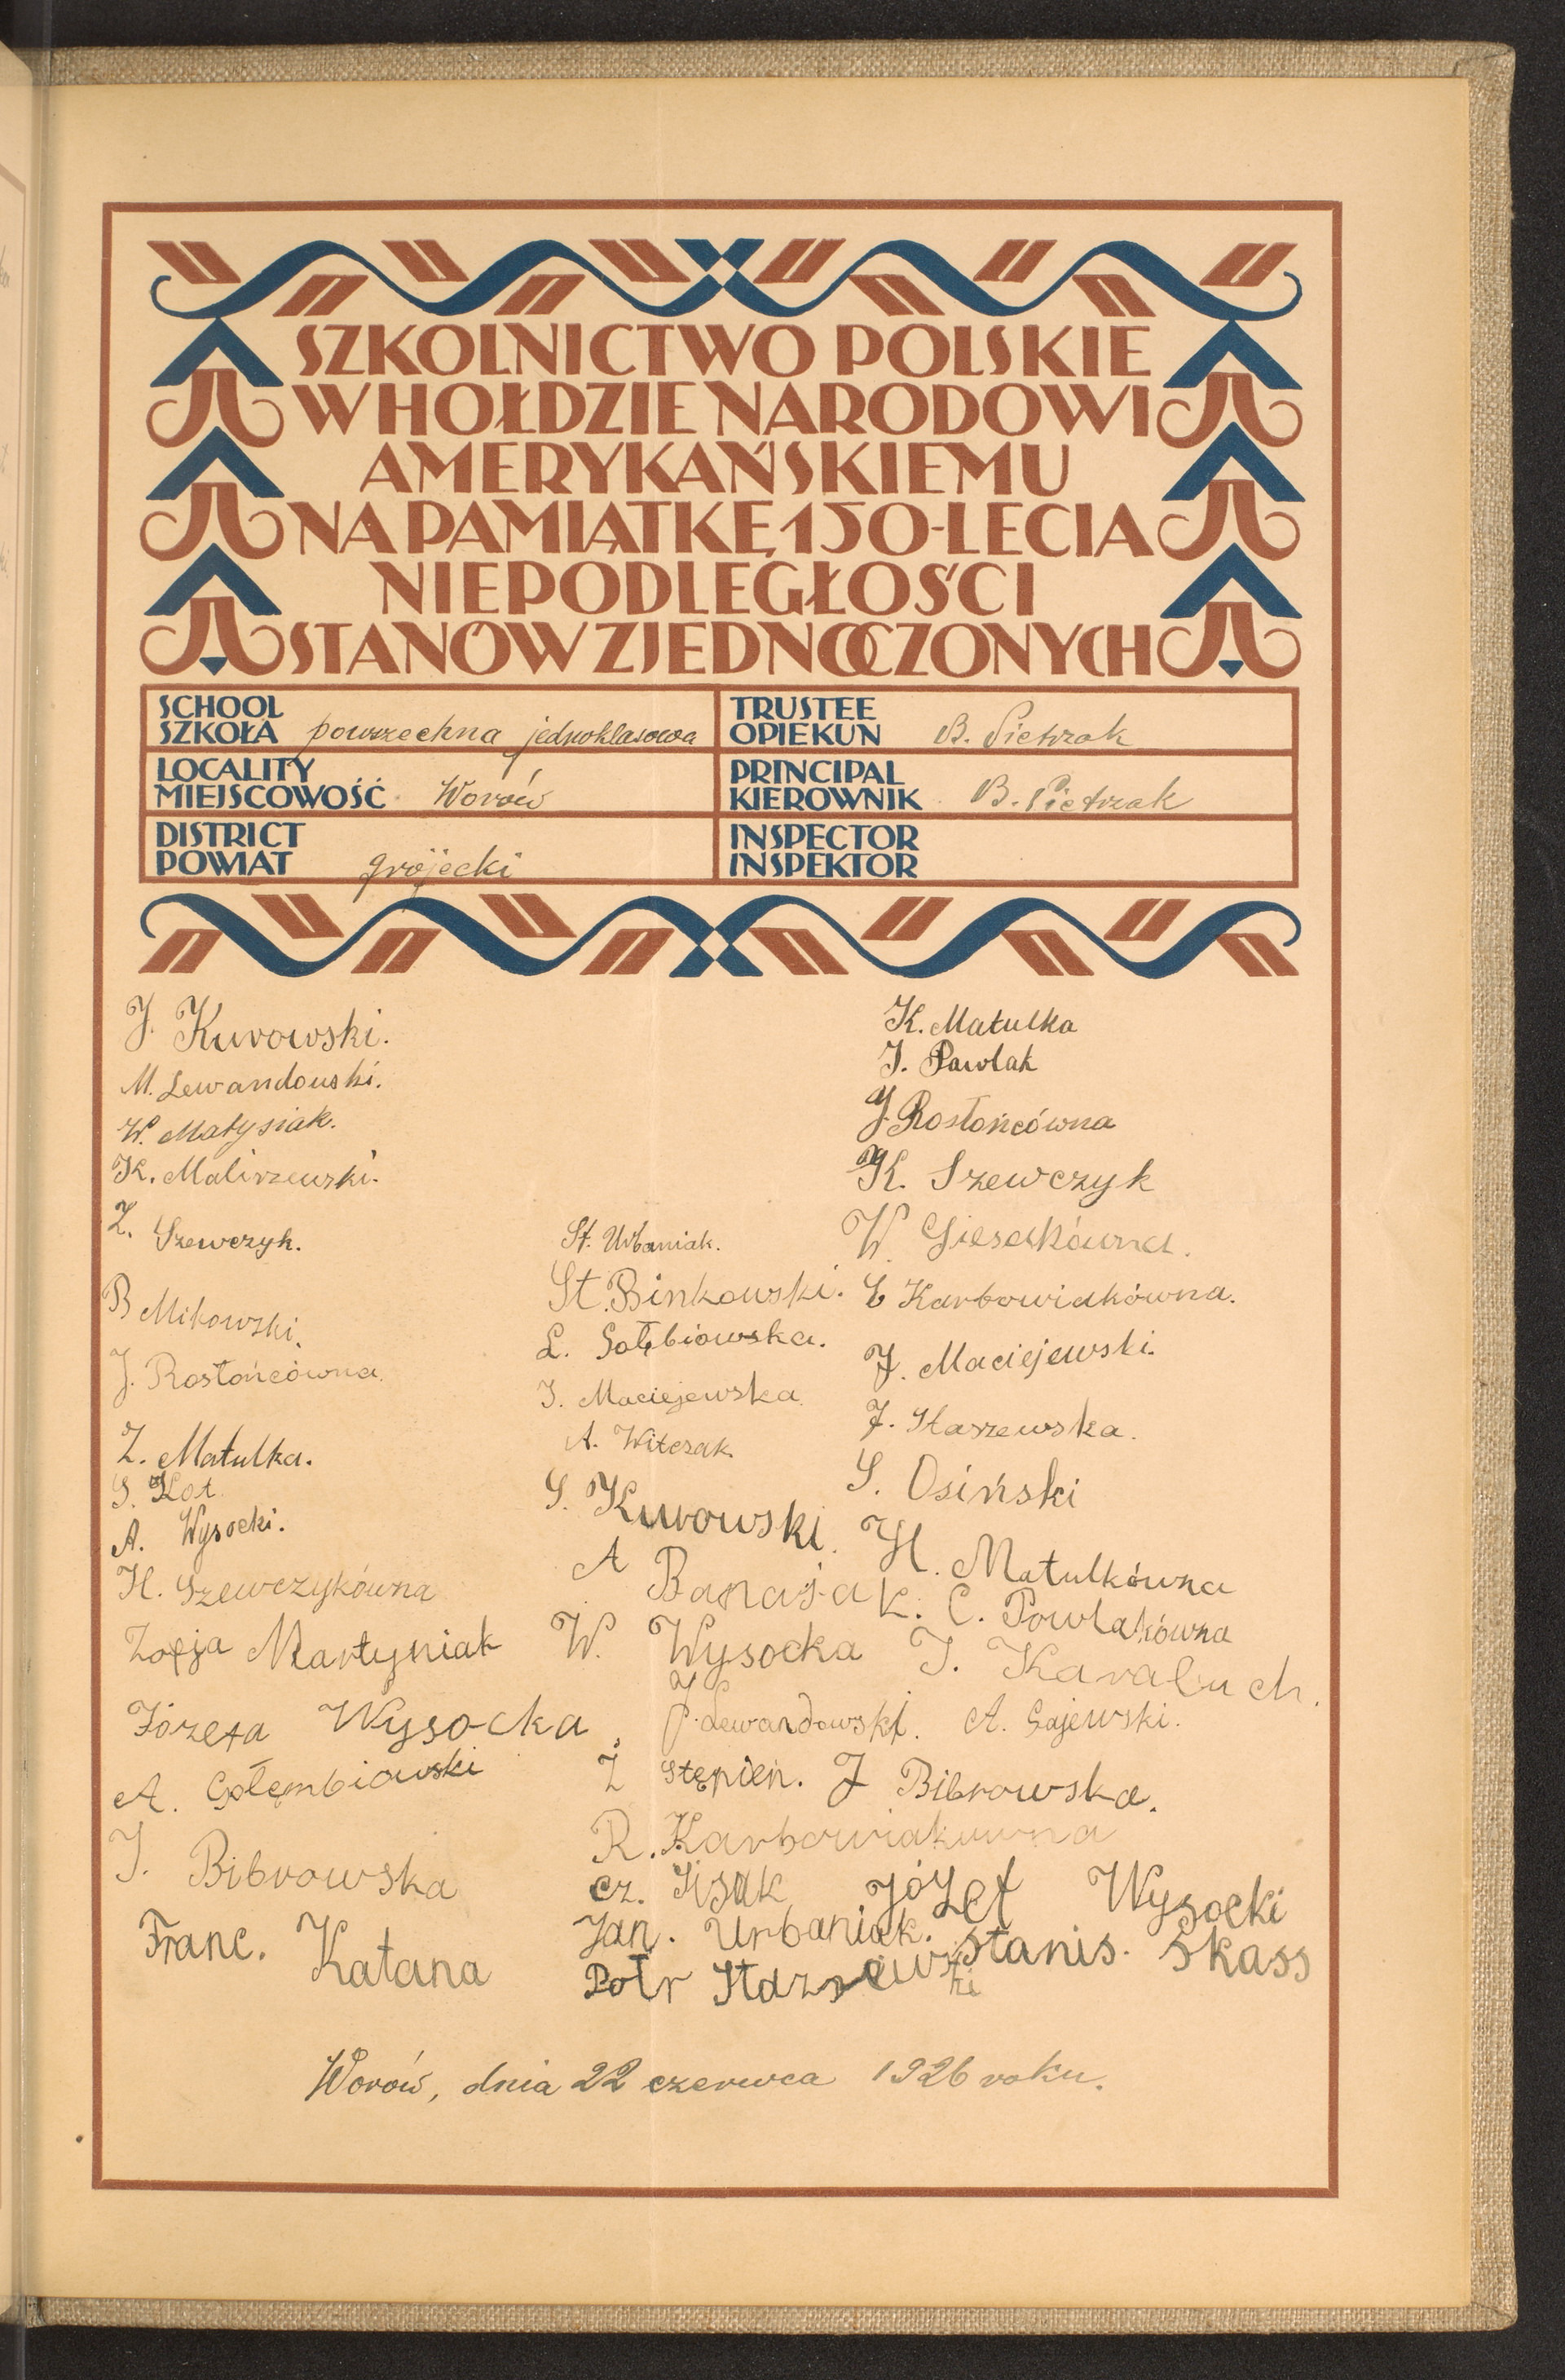 SZKOLNICTWO POLSKIE
W HOŁDZIE NARODOWI
AMERYKAŃSKIEMU
NA PAMIĄTKĘ 150-LECIA
NIEPODLEGŁOŚCI
STANÓW ZJEDNOCZONYCH
SCHOOL
SZKOŁA powszechna jednoklasowa
TRUSTEE
OPIEKUN B. Pietrzak
LOCALITY
MIEJSCOWOŚĆ Worów
PRINCIPAL
KIEROWNIK B. Pietrzak
DISTRICT
POWIAT grójecki
INSPECTOR
INSPEKTOR
J. Kurowski.
M. Lewandowski.
W. Matysiak.
K. Maliszewski.
Z. Szewczyk.
B Mikowski.
J. Rosłońcówna.
Z. Matulka.
S. Kot
A. Wysocki.
H. Szewczykówna
Zofja Martyniak
Józefa Wysocka
A. Gołembiowski
J. Bibrowska
Franc. Katana
St. Urbaniak.
St. Binkowski.
L. Gołębiowska.
J. Maciejewska.
A. Witczak.
S. Kurowski.
A Banasiak.
W. Wysocka
J. Lewandowski.
Z Stępień.
R. Karbowiakuwna
Cz. Sisuk
Jan. Urbaniak.
Potr Staszewski
K. Matulka
J. Pawlak
J. Rosłońcówna
K. Szewczyk
W. Giesakówna.
E Karbowiakówna.
J. Maciejewski.
J. Staszewska.
S. Osiński
H. Matulkówna
C. Powlakówna
J. Karaluch.
A. Gajewski.
J Bibrowska.
Józef Wysocki
Stanis. Skass
Worów, dnia 22 czerwca 1926 roku.